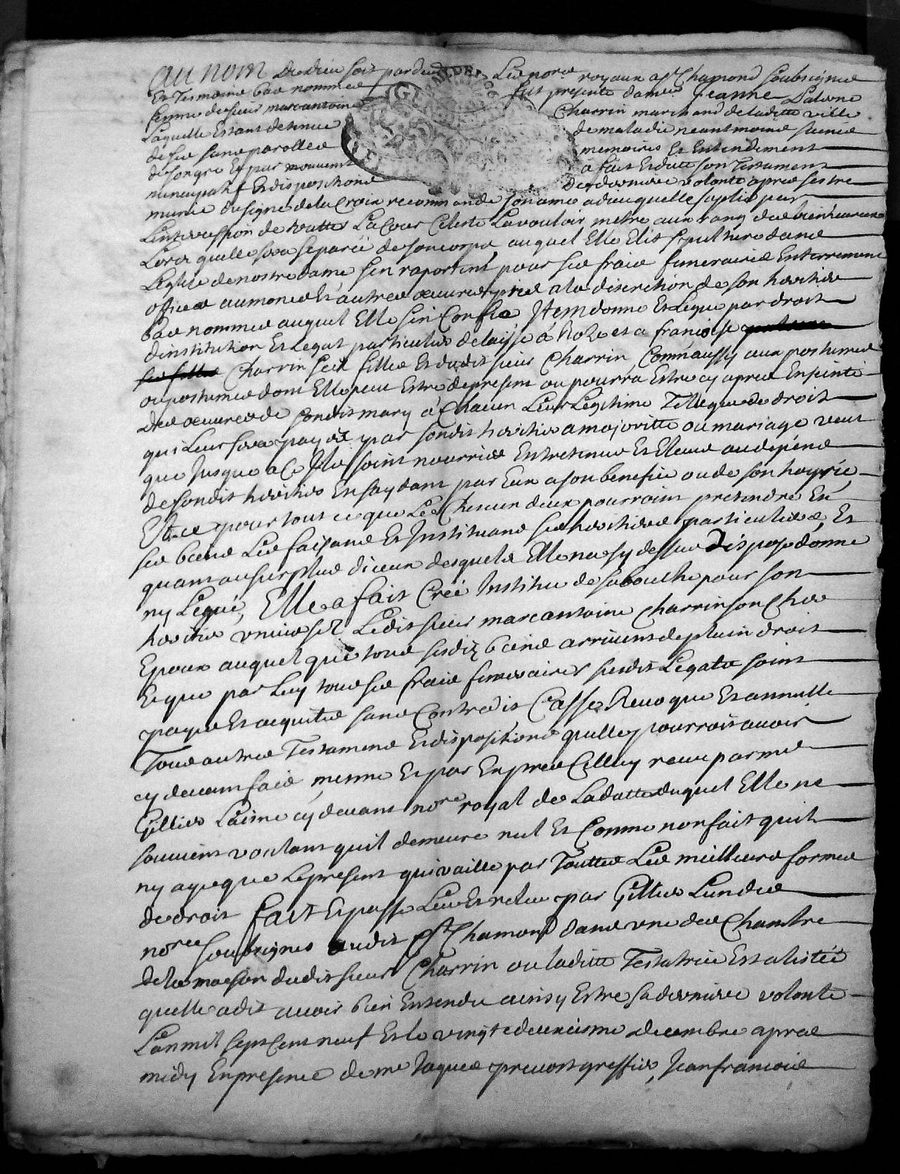 au nom de dieu soit par devt Les nores royaux a st Chamond soubsignes
Et Tesmoins bas nommes fut presente dame Jeanne
femme de sieur marcantoine Charrin marchand de laditte ville
Laquelle Estant detenue de maladie neantmoins saine
de ses sans parolles memoires Et Entendement
de son gre Et pur mouvement a fait Et dicte son Testament
nuncupatif Et disposition de derniere volonte apres sestre
munie du signe de la Croix recommande son ame a dieu quelle suplie par
Lintercession de toutte La Cour Celeste La vouloir mettre au rang des bienheureux
Lors quelle sera separée de son corps auquel Elle Elit sepulture dans
Leglise de nostre dame sen raportent pour ses frais funeraires Enterrement
offices aumones Et autres œuvres pies a la discretion de son heritier
bas nomme auquel Elle sen Confie Item donne Et Legue par droit
dinstitution Et Legat particulier delaisse à et a francoise
Charrin ses filles Et dudit sieur Charrin Comm aussy aux postumes
ou postume dont Elle peut Estre de present ou pourra Estre cy apres Enceinte
des œuvres de sondit mary a Chacun Leur Legitime Telle que de droit
qui Leur sera payée par sondit heritier a majorité ou mariage veut
que Jusque a Ce Ils soint nourris Entretenus Et Eleves au depend
de sondit heritier En saydant par Eux a son benefice ou de son hoyrie
Et ce pour tout ce que Les Chacun deux pourroint pretendre En
ses biens Les faisans Et Instituans ses heritiers particuliers Et
quant au surplus diceux desquels Elle na cy dessus disposé donne
ny Legué, Elle a fait Créé Institue de sa bouche pour son
heritier universel Ledit sieur marcantoine Charrin son Cher
Epoux auquel que tous sesdits biens arrivent de plain droit
Et que par Luy tous ses frais funeraires susdit Legats soint
payes Et acquites sans Contredit Casse Revoque Et annulle
Tous autres Testamens Et dispositions quelle pourroit avoir
cy devant fais mesme Et par Expres Celluy receu par me
Gillier Laisne cy devant nore royal de La datte duquel Elle ne
souvient voulant quil demeure nul Et Comme non fait quil
ny aye que Le present qui vaille par Toutte Les meilleurs formes
de droit fait Et passe Leu Et releu par Gillier Lun des
nores soubsignes audit st Chamond dans une des Chambre
de la maison dudit sieur Charrin ou laditte Testatrice Est alistée
quelle a dit avoir bien Entendu ainsy Estre sa derniere volonte
Lan mil sept Cent neuf Et le vingtdeuxieme decembre apres
midy En presence de me Jaques prevost greffier, Jean francois